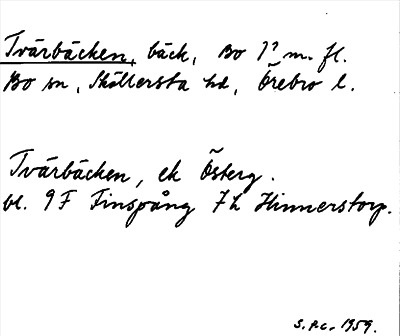 Tvärbäcken, bäck, Bo 1? m. fl.
Bo sn, Sköllersta hd, Örebro l.
Tvärbäcken, ek Österg.
bl. 9F Finspång 7h Hinnerstorp.
S. P.C. 1959.